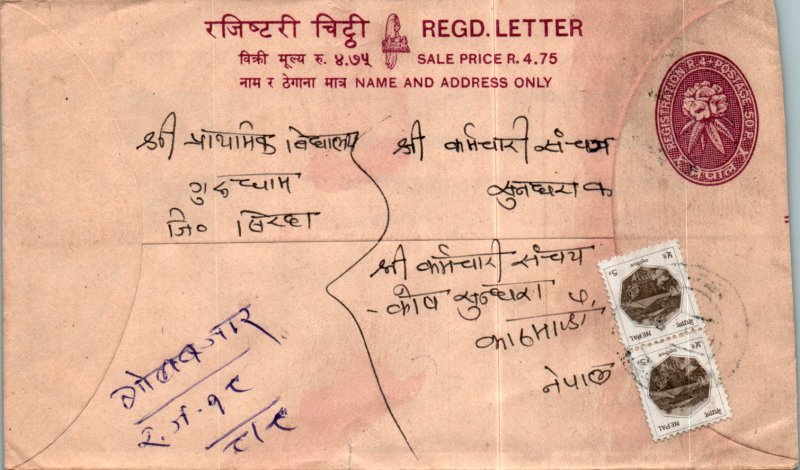 रजिष्टरी चिट्ठी REGD. LETTER
विक्री मूल्य रु. ४.७५ SALE PRICE R. 4.75
नाम र ठेगाना मात्र NAME AND ADDRESS ONLY
REGISTRATION R. 4 + POSTAGE 50 P.
श्री प्राथमिक विद्यालय
जि० सिरहा
श्री कर्मचारी संचय
श्री कर्मचारी संचय
कोष सुन्धारा
काठमाडौं
नेपाल
गोलबजार
नेपाल
NEPAL
5P.
नेपाल
NEPAL
5P.